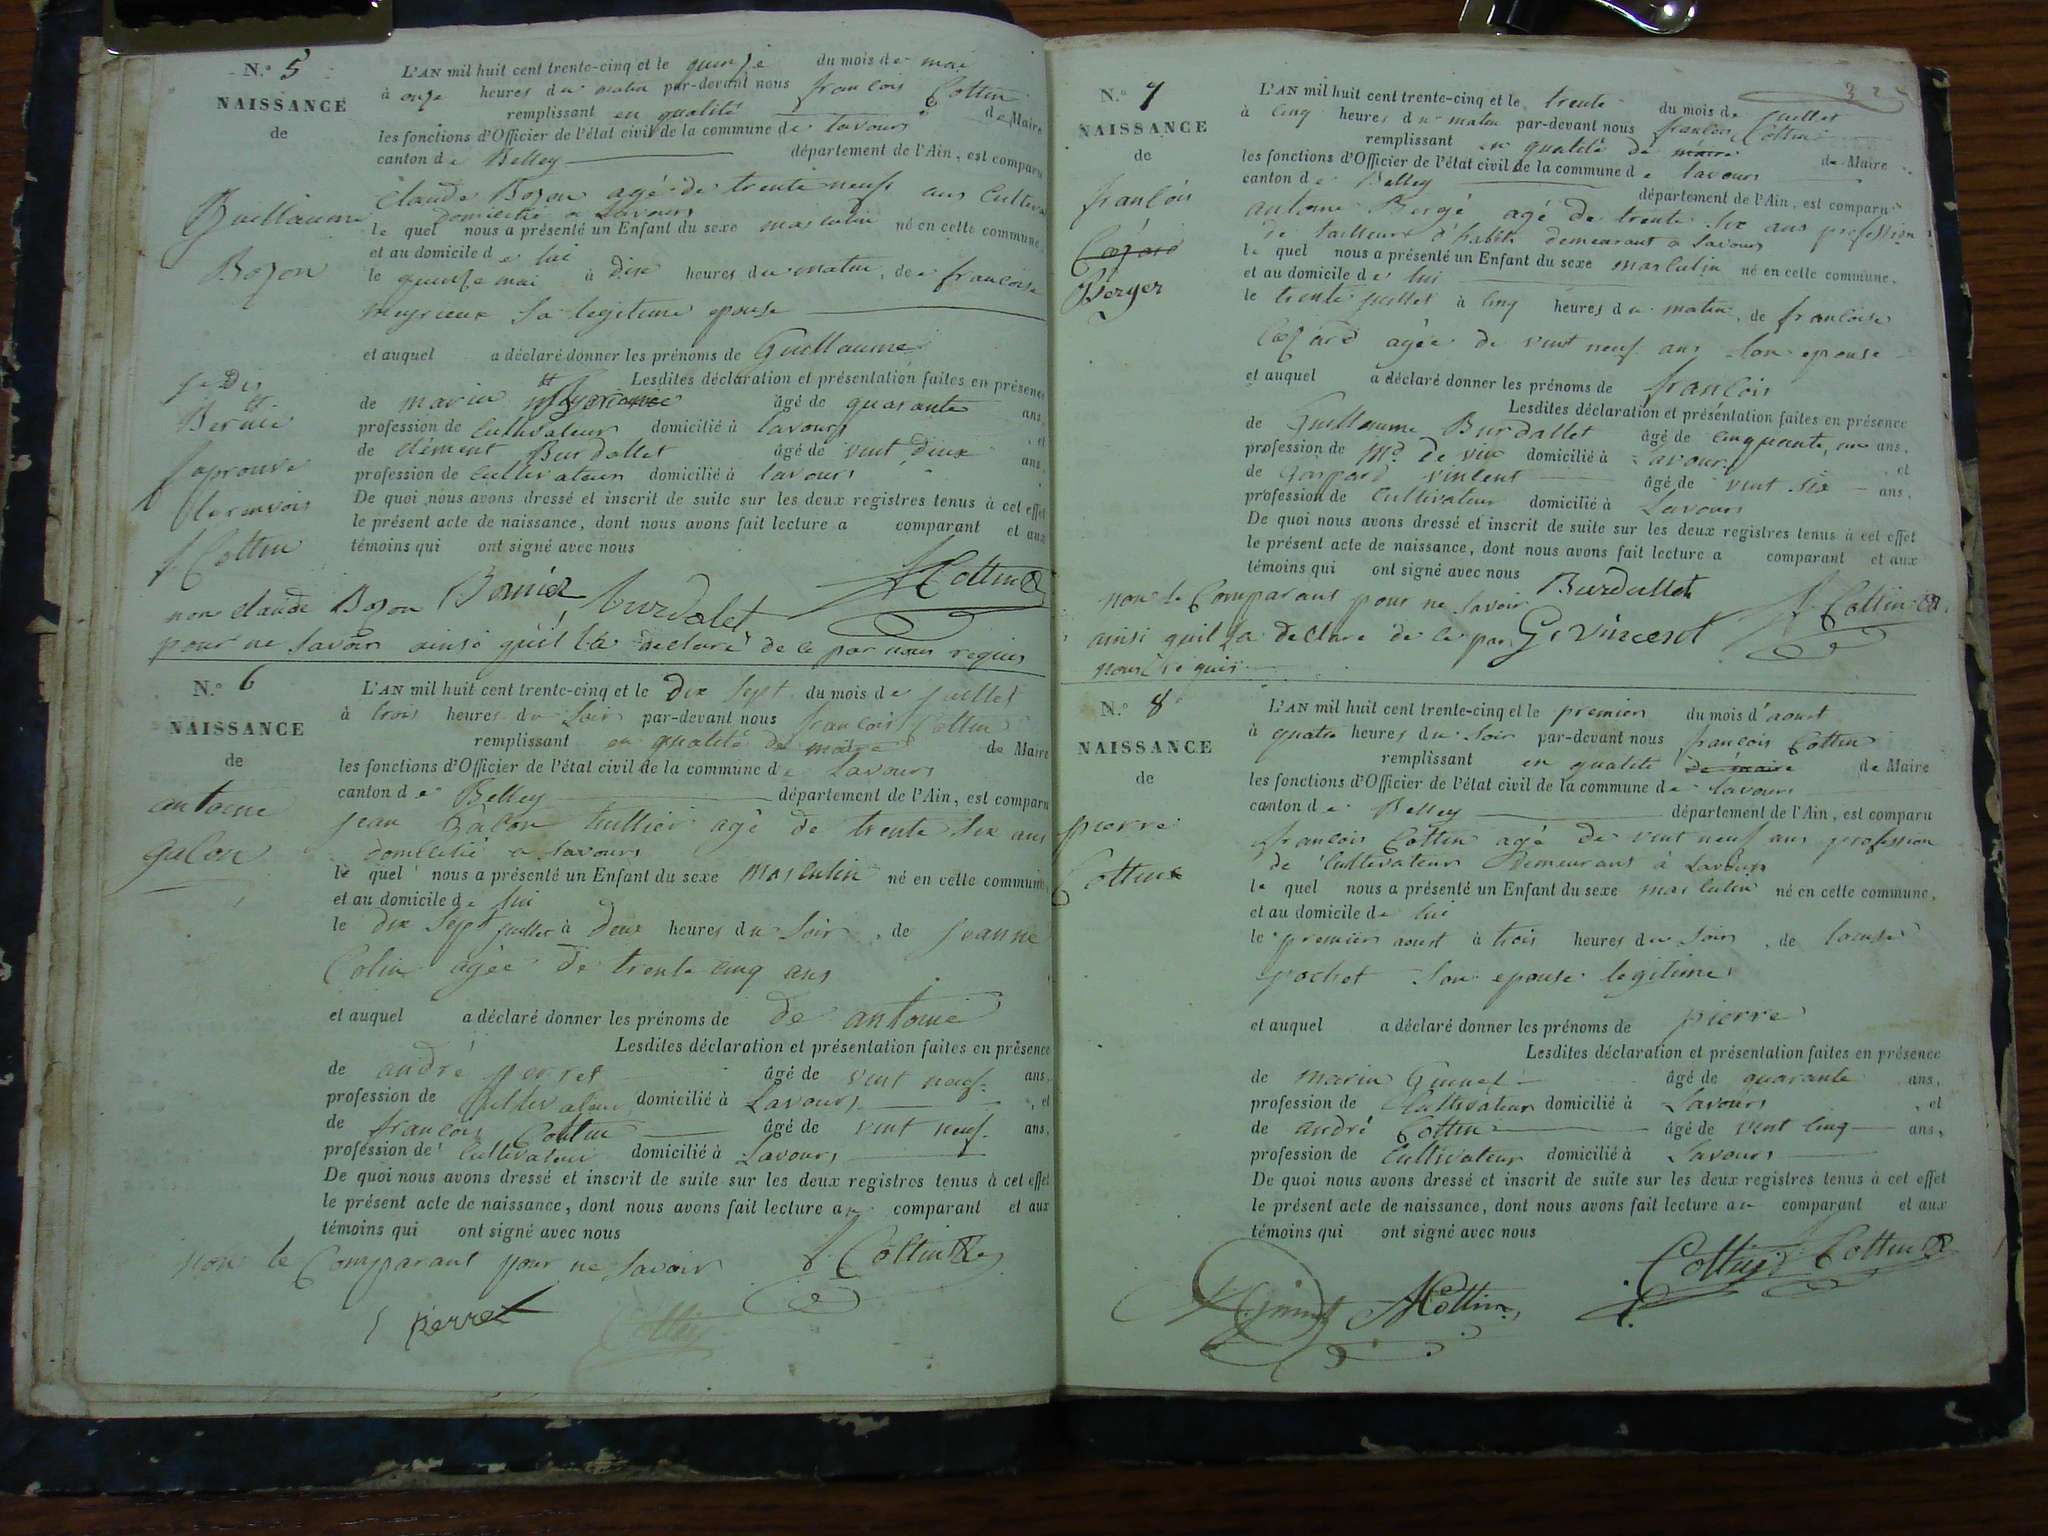 N.° 5
NAISSANCE
de
Guillaume
Bozon
je dis
Bernié
japrouve
le renvois
f. Cottin
L'AN mil huit cent trente-cinq et le quinze du mois de mai
à onze heures du matin par-devant nous francois Cottin
remplissant en qualité de Maire
les fonctions d'Officier de l'état civil de la commune de Lavours
canton de Belley département de l'Ain, est comparu
Claude Bozon agé de trente neuf ans Cultiva
domicilié a Lavours
le quel nous a présenté un Enfant du sexe masculin né en cette commune,
et au domicile de lui
le quinze mai à dix heures du matin, de francoise
meyrieux sa legitime epouse
et auquel a déclaré donner les prénoms de Guillaume
Lesdites déclaration et présentation faites en présence
de marin âgé de quarante ans,
profession de Cultivateur domicilié à Lavours, et
de Clément Burdallet âgé de vint deux ans,
profession de Cultivateur domicilié à lavours
De quoi nous avons dressé et inscrit de suite sur les deux registres tenus à cet effet
le présent acte de naissance, dont nous avons fait lecture a comparant et aux
témoins qui ont signé avec nous
non claude Bozon Bernier burdalet f. Cottin
pour ne savoir ainsi qu'il la declaré de ce par nous requis
N.° 6
NAISSANCE
de
antoine
galon
L'AN mil huit cent trente-cinq et le dix sept du mois de juillet
à trois heures du soir par-devant nous francois Cottin
remplissant en qualité de maire de Maire
les fonctions d'Officier de l'état civil de la commune de Lavours
canton de Belley département de l'Ain, est comparu
jean galon tuillier agé de trente six ans
domicilié a Lavours
le quel nous a présenté un Enfant du sexe masculin né en cette commune,
et au domicile de lui
le dix sept juillet à deux heures du soir, de jeanne
Colin agée de trente cinq ans
et auquel a déclaré donner les prénoms de de antoine
Lesdites déclaration et présentation faites en présence
de andré perret âgé de vint neuf ans,
profession de Cultivateur domicilié à Lavours, et
de francois Cottin âgé de vint neuf ans,
profession de Cultivateur domicilié à Lavours
De quoi nous avons dressé et inscrit de suite sur les deux registres tenus à cet effet
le présent acte de naissance, dont nous avons fait lecture au comparant et aux
témoins qui ont signé avec nous
non le Comparant pour ne savoir f. Cottin
perret Cottin
N.° 7
NAISSANCE
de
francois
Cozard
Berger
L'AN mil huit cent trente-cinq et le trente du mois de juillet
à cinq heures du matin par-devant nous francois Cottin
remplissant en qualité de maire de Maire
les fonctions d'Officier de l'état civil de la commune de Lavours
canton de Belley département de l'Ain, est comparu
antoine Bergé agé de trente six ans profession
de tailleurs d'habits demeurant a Lavours
le quel nous a présenté un Enfant du sexe masculin né en cette commune,
et au domicile de lui
le trente juillet à cinq heures du matin, de francoise
Cozard agée de vint neuf ans son epouse
et auquel a déclaré donner les prénoms de francois
Lesdites déclaration et présentation faites en présence
de Guillaume Burdallet âgé de cinquante, un ans,
profession de Md. de vin domicilié à Lavours, et
de Gaspard vincent âgé de vint six ans,
profession de Cultivateur domicilié à Lavours
De quoi nous avons dressé et inscrit de suite sur les deux registres tenus à cet effet
le présent acte de naissance, dont nous avons fait lecture a comparant et aux
témoins qui ont signé avec nous
non le Comparant pour ne savoir Burdallet f. Cottin
ainsi quil la declaré de ce par G. vincent
nous requis
N.° 8
NAISSANCE
de
pierre
Cottin
L'AN mil huit cent trente-cinq et le premier du mois d'aoust
à quatre heures du soir par-devant nous francois Cottin
remplissant en qualité de maire de Maire
les fonctions d'Officier de l'état civil de la commune de Lavours
canton de Belley département de l'Ain, est comparu
francois Cottin agé de vint neuf ans profession
de Cultivateur demeurant à Lavours
le quel nous a présenté un Enfant du sexe masculin né en cette commune,
et au domicile de lui
le premier aoust à trois heures du soir, de
pochet son epouse legitime
et auquel a déclaré donner les prénoms de pierre
Lesdites déclaration et présentation faites en présence
de marin Guinet âgé de quarante ans,
profession de Cultivateur domicilié à Lavours, et
de andré Cottin âgé de vint cinq ans,
profession de Cultivateur domicilié à Lavours
De quoi nous avons dressé et inscrit de suite sur les deux registres tenus à cet effet
le présent acte de naissance, dont nous avons fait lecture au comparant et aux
témoins qui ont signé avec nous
M. Guinet A Cottin Cottin f. Cottin